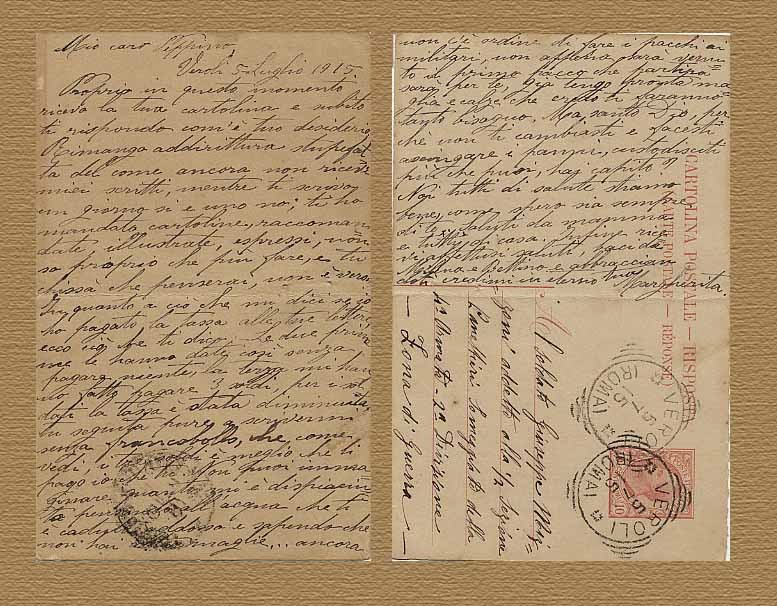 Mio caro Peppino,
Veroli 5-Luglio 1915
Proprio in questo momento
ricevo la tua cartolina e subito
ti rispondo com'è tuo desiderio
Rimango addirittura stupefat-
ta del come ancora non ricevi
miei scritti, mentre ti scrivo
un giorno si e uno no; ti ho
mandato cartoline, raccoman-
date, illustrate, espressi, non
so proprio che più fare, e tu
chissà che penserai, non è vero?
In quanto a ciò che mi dici se io
ho pagato la tassa alle tue lettere,
ecco ciò che ti dico. Le due prime
me le hanno date così senza
pagare niente, la terza mi han-
no fatto pagare 3 soldi per i sol-
dati la tassa è stata diminuita,
in seguito pure a scrivermi
senza francobollo, che, come
vedi, è meglio che li
pago io che tu. Non puoi imma-
ginare quanto mi è dispiaciu-
ta acqua che ti
è caduta addosso e sapendo che
non hai maglie,... ancora
non c'è ordine di fare i pacchi ai
militari, non appena sarà venu-
to il primo pacco che partirà
sarà per te, già tengo pronta ma-
glia e calze, che credo ti faranno
tanto bisogno. Ma, santo Dio, per-
chè non ti cambiasti e facesti
asciugare i panni, custodisciti
più che puoi, hai capito?
Noi tutti di salute stiamo
bene, come spero sia sempre
di te. Saluti da mamma
e tutti di casa. Infine rice-
vi affettuosi saluti, baci da
e Bettina e abbraccian-
doti credimi in eterno tua
Margherita.
CARTOLINA POSTALE - RISPOSTA
(CARTE POSTALE - RÉPONSE)
A Soldato Giuseppe
addetto alla 1/2 Sezione
Panettieri Someggiata della
4a Armata - 2a Divisione
- Zona di Guerra -
VEROLI
(ROMA)
5 7 15
VEROLI
(ROMA)
5 7 15